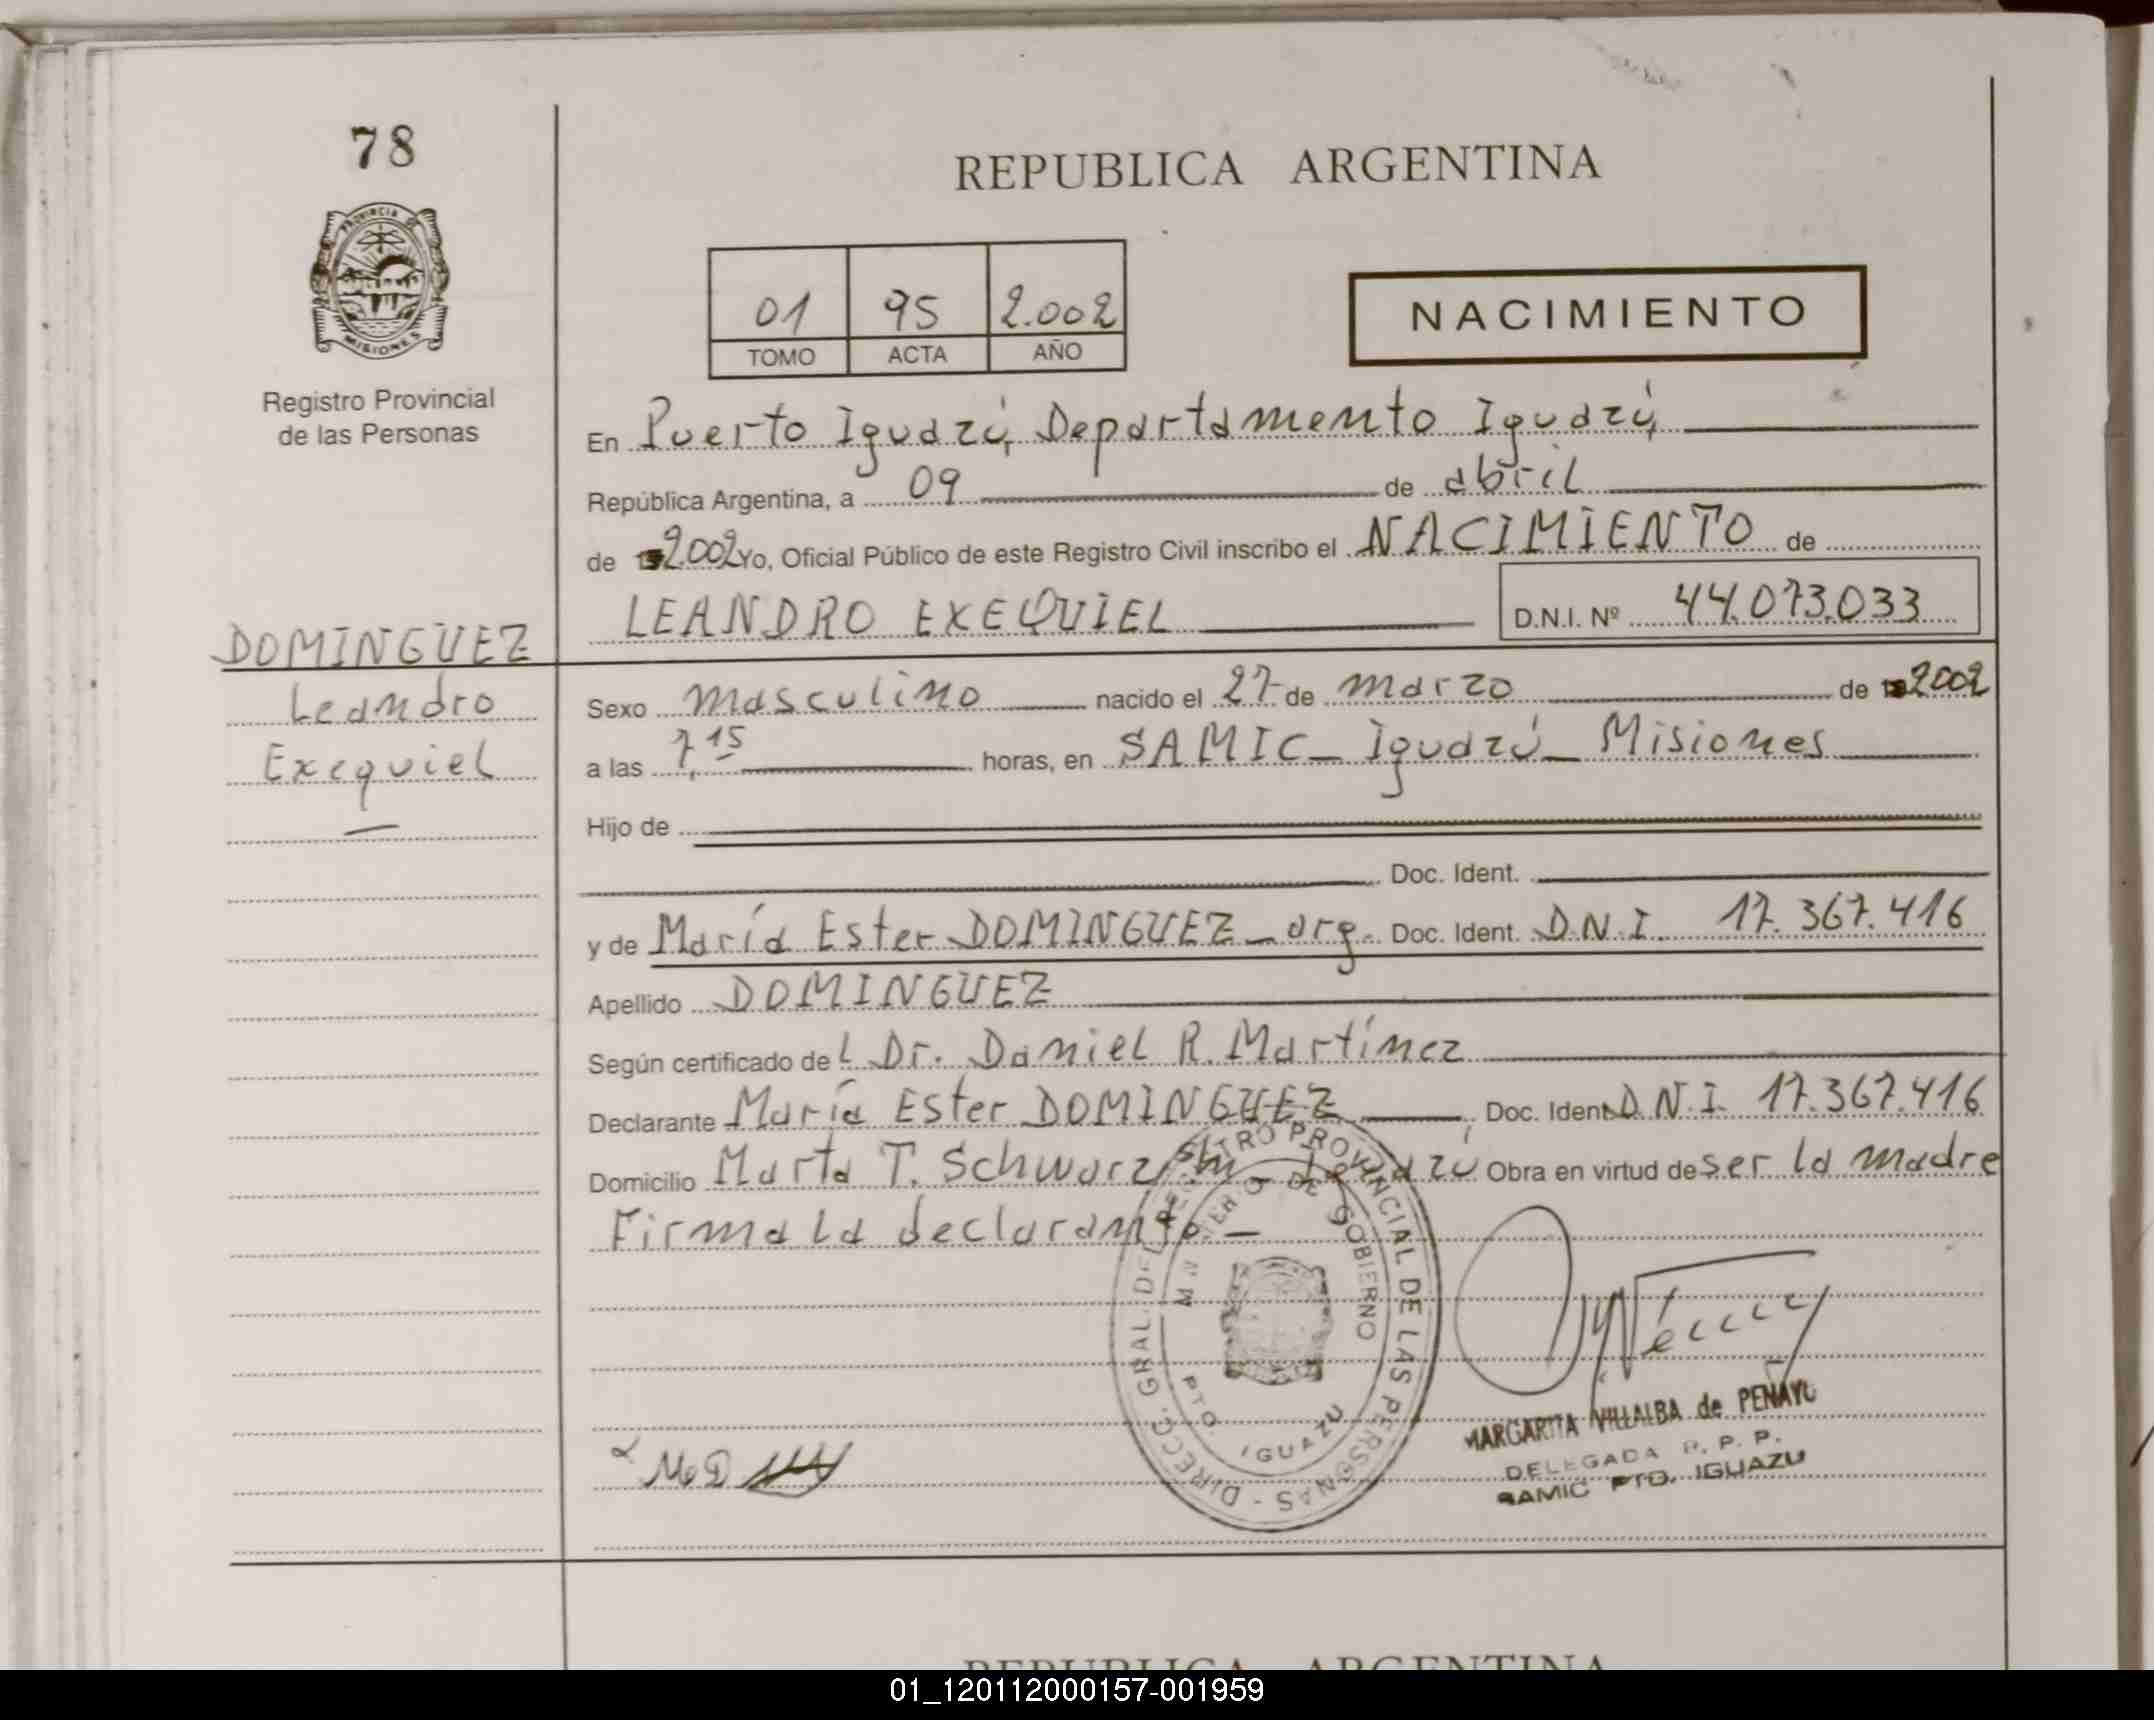 78
REPUBLICA ARGENTINA
PROVINCIA DE
MISIONES
Registro Provincial
de las Personas
01 95 2.002
TOMO ACTA AÑO
NACIMIENTO
En Puerto Iguazú, Departamento Iguazú,
República Argentina, a 09 de abril
de 2.002 Yo, Oficial Público de este Registro Civil inscribo el NACIMIENTO de
LEANDRO EXEQUIEL D.N.I. Nº 44.073.033
DOMINGUEZ
Leandro
Exequiel
Sexo masculino nacido el 27 de marzo de 2002
a las 7,15 horas, en SAMIC_ Iguazú_ Misiones
Hijo de
Doc. Ident.
y de María Ester DOMINGUEZ_ arg. Doc. Ident. D.N.I. 17.367.416
Apellido DOMINGUEZ
Según certificado del Dr. Daniel R. Martínez
Declarante María Ester DOMINGUEZ, Doc. Ident. D.N.I. 17.367.416
Domicilio Marta T. Schwarz s/n - Iguazú Obra en virtud de ser la madre
Firma la declarante. —
DIRECC. GRAL. DEL REGISTRO PROVINCIAL DE LAS PERSONAS -
MINISTERIO DE GOBIERNO
PTO. IGUAZU
MARGARITA VILLALBA de PENAYO
DELEGADA R. P. P.
SAMIC PTO. IGUAZU
REPUBLICA ARGENTINA
01_120112000157-001959